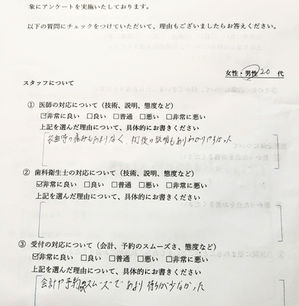 象にアンケートを実施いたしております。
以下の質問にチェックをつけていただいて、理由もございましたらお答えください。
女性・男性 20 代
スタッフについて
① 医師の対応について（技術、説明、態度など）
☑非常に良い □良い □普通 □悪い □非常に悪い
上記を選んだ理由について、具体的にお書きください
② 歯科衛生士の対応について（技術、説明、態度など）
☑非常に良い □良い □普通 □悪い □非常に悪い
上記を選んだ理由について、具体的にお書きください
③ 受付の対応について（会計、予約のスムーズさ、態度など）
☑非常に良い □良い □普通 □悪い □非常に悪い
上記を選んだ理由について、具体的にお書きください
会計や予約がスムーズであまり待ちが少なかった